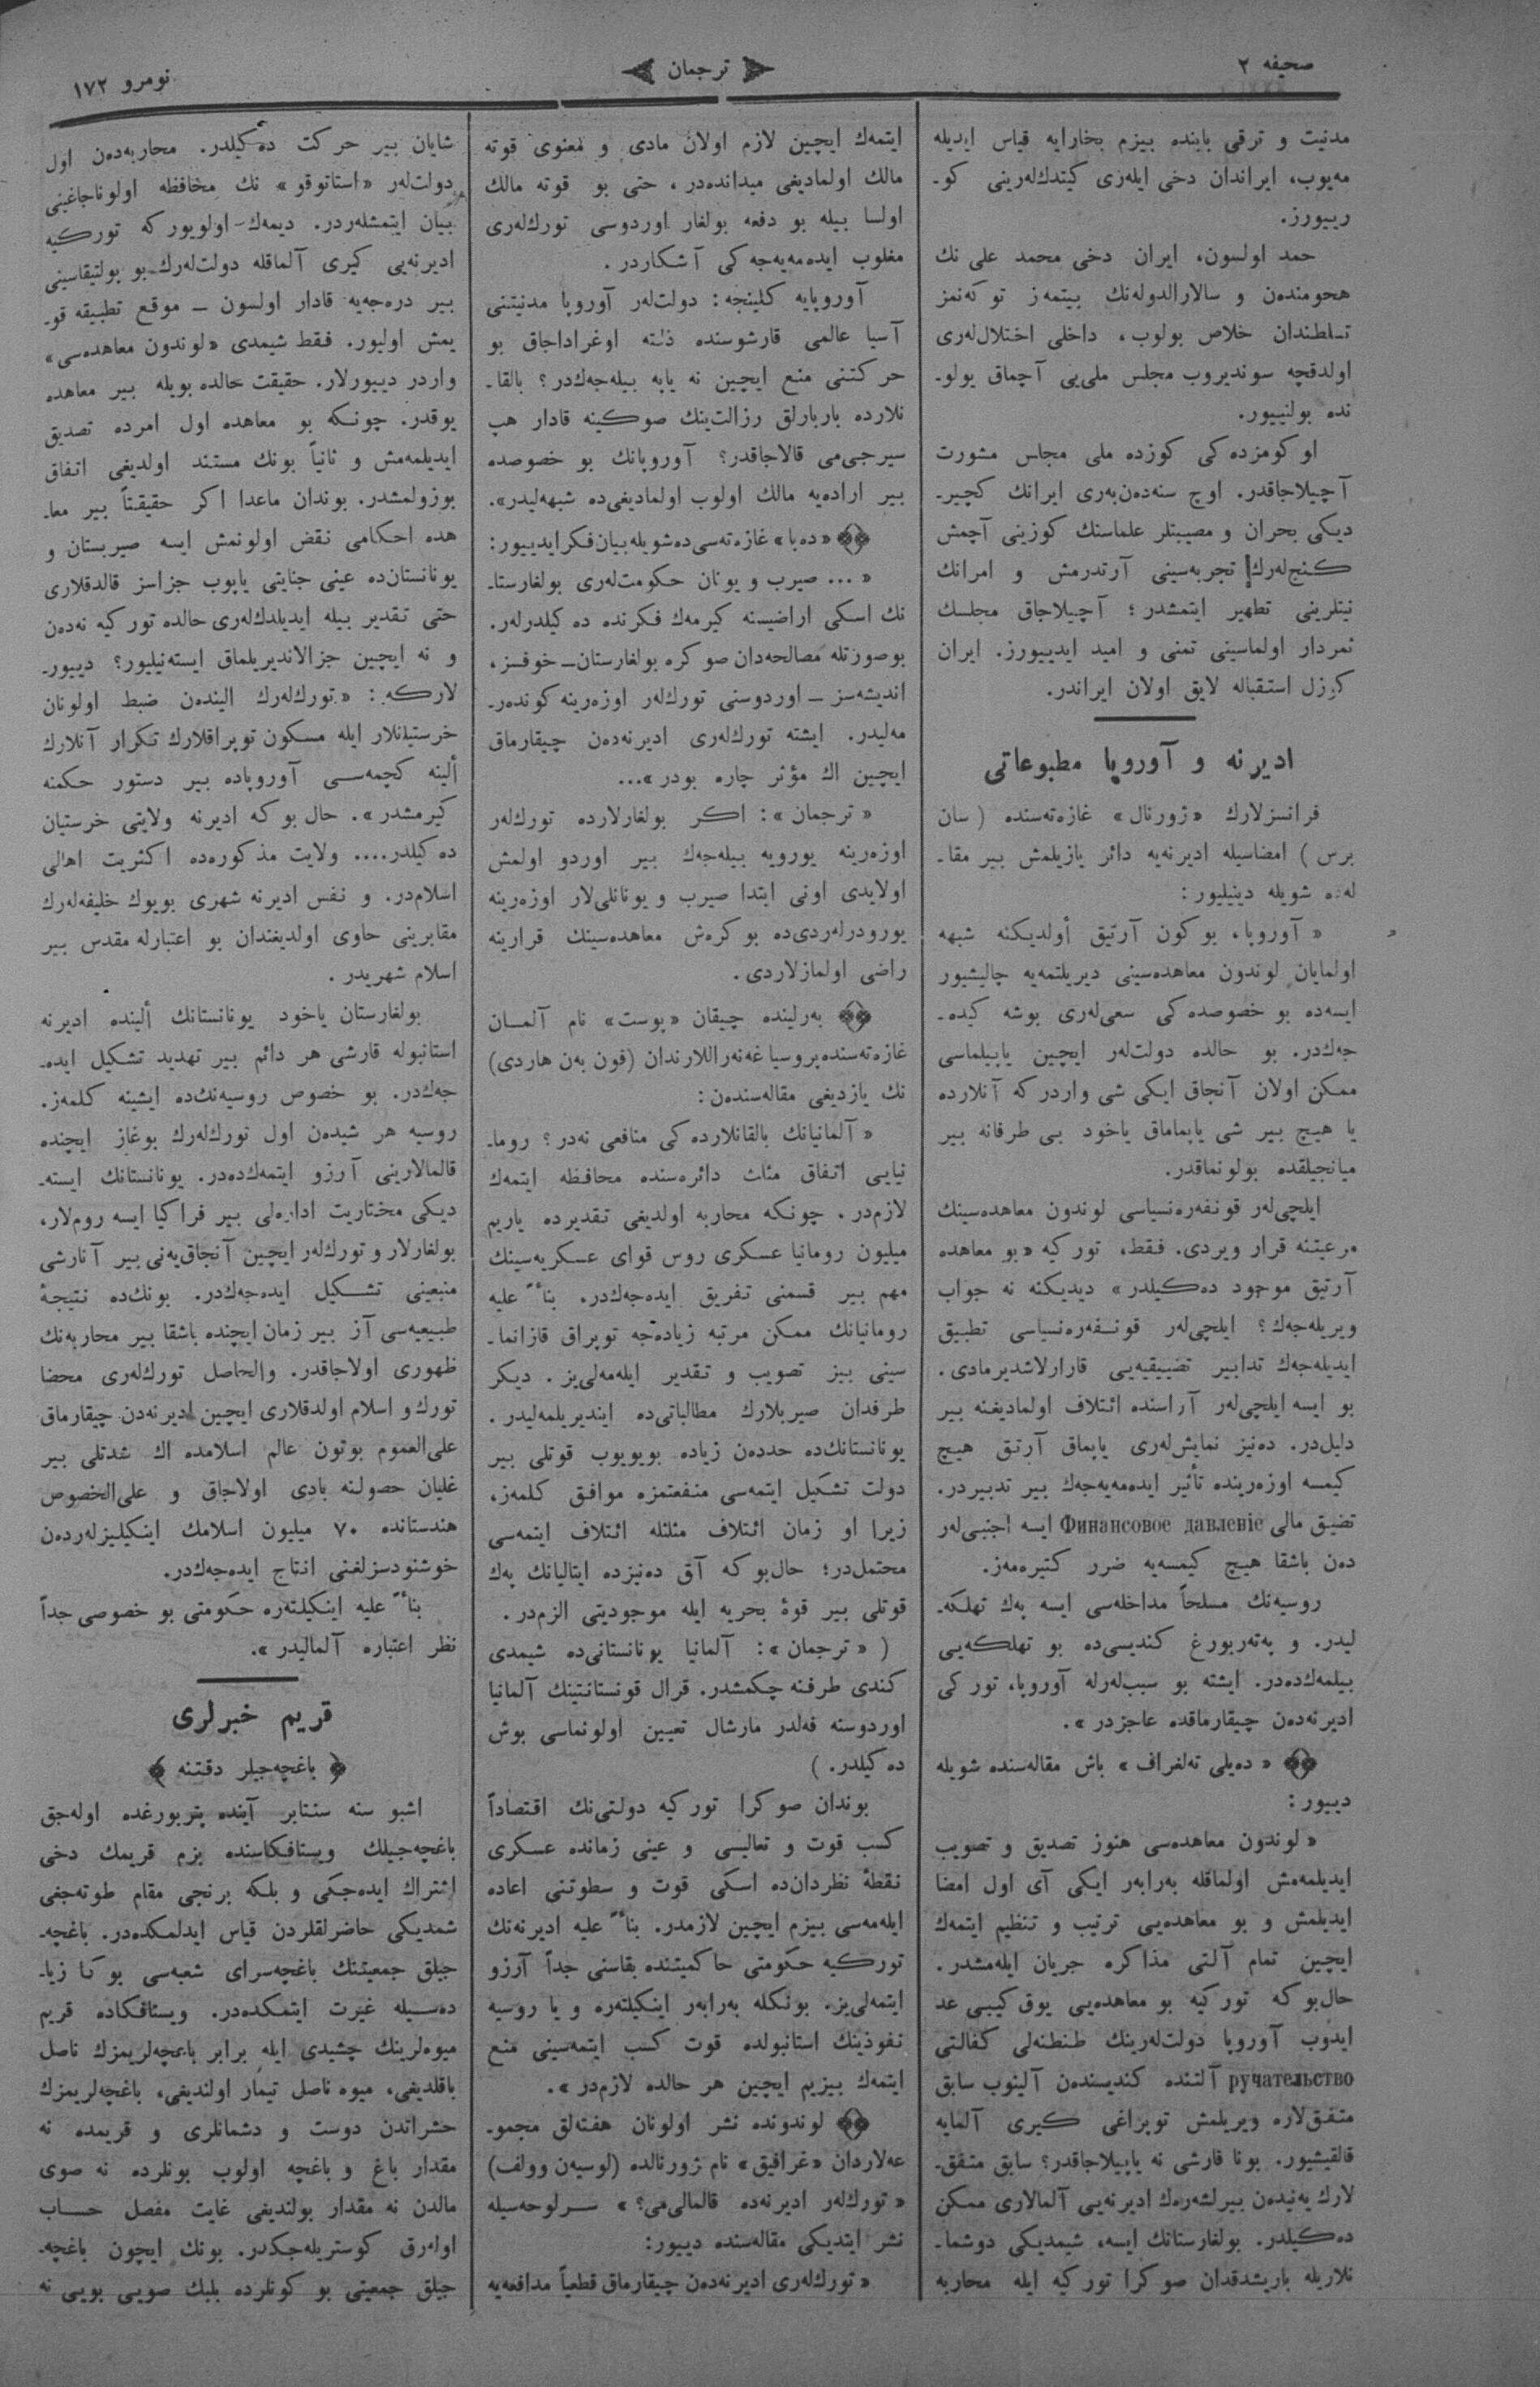 صحیفه ٢
ترجمان
نومرو ١٧٢
مدنیت و ترقی بابنده بیزم بخارایه قیاس ایدیله
مه‌یوب، ایراندان دخی ایله‌ری کیتدك‌له‌رینی کو-
رییورز.
حمد اولسون، ایران دخی محمد علی نك
هجومنده‌ن و سالارالدوله‌نك بیتمه‌ز توکه‌نمز
تسلطندان خلاص بولوب، داخلی اختلال‌له‌ری
اولدقچه سوندیروب مجلس ملی‌یی آچماق یولو-
نده بولنییور.
اوکومزده‌کی کوزده ملی مجلس مشورت
آچیلاجاقدر. اوچ سنه‌ده‌ن‌به‌ری ایرانك کچیر-
دیکی بحران و مصیبتلر علماسنك کوزینی آچمش
کنج‌له‌رك تجربه‌سینی آرتدرمش و امرانك
نیتلرینی تطهیر ایتمشدر؛ آچیلاجاق مجلسك
ثمردار اولماسینی تمنی و امید ایدییورز. ایران
کوزل استقباله لایق اولان ایراندر.
ادیرنه و آوروپا مطبوعاتی
فرانسزلارك «ژورنال» غازه‌ته‌سنده (سان
برس) امضاسیله ادیرنه‌یه دائر یازیلمش بیر مقا-
له‌ده شویله دینیلیور:
«آوروپا، بوکون آرتیق أولدیکنه شبهه
اولمایان لوندون معاهده‌سینی دیریلتمه‌یه چالیشیور
ایسه‌ده بو خصوصده‌کی سعی‌له‌ری بوشه کیده-
جه‌ك‌در. بو حالده دولت‌له‌ر ایچین یاپیلماسی
ممکن اولان آنجاق ایکی شی واردر که آنلارده
یا هیچ بیر شی یاپماماق یاخود بی طرفانه بیر
میانجیلقده بولونماقدر.
ایلچی‌له‌ر قونفه‌ره‌نسیاسی لوندون معاهده‌سینك
مرعیتنه قرار ویردی. فقط، تورکیه «بو معاهده
آرتیق موجود ده‌کیلدر» دیدیکنه نه جواب
ویریله‌جه‌ك؟ ایلچی‌له‌ر قونفه‌ره‌نسیاسی تطبیق
ایدیله‌جه‌ك تدابیر تضییقیه‌یی قارارلاشدیرمادی.
بو ایسه ایلچی‌له‌ر آراسنده ائتلاف اولمادیغنه بیر
دلیل‌در. ده‌نیز نمایش‌له‌ری یاپماق آرتق هیچ
کیمسه اوزه‌رینده تأثیر ایده‌مه‌یه‌جه‌ك بیر تدبیردر.
تضیق مالی Финансовое давленіе ایسه اجنبی‌له‌ر
ده‌ن باشقا هیچ کیمسه‌یه ضرر کتیره‌مه‌ز.
روسیه‌نك مسلحاً مداخله‌سی ایسه پك تهلکه-
لیدر. و پەتەربورغ کندیسی‌ده بو تهلکه‌یی
بیلمه‌ك‌ده‌در. ایشته بو سبب‌له‌رله آوروپا، تورکی
ادیرنه‌ده‌ن چیقارماقده عاجزدر».
«ده‌یلی ته‌لغراف» باش مقاله‌سنده شویله
دییور:
«لوندون معاهده‌سی هنوز تصدیق و تصویب
ایدیلمه‌مش اولماقله به‌رابه‌ر ایکی آی اول امضا
ایدیلمش و بو معاهده‌یی ترتیب و تنظیم ایتمه‌ك
ایچین تمام آلتی مذاکره جریان ایله‌مشدر.
حال‌بوکه تورکیه بو معاهده‌یی یوق کیبی عد
ایدوب آوروپا دولت‌له‌رینك طنطنه‌لی کفالتی
ручательство آلتنده کندیسنده‌ن آلینوب سابق
متفق‌لاره ویریلمش توپراغی کیری آلمایه
قالقیشیور. بونا قارشی نه یاپیلاجاقدر؟ سابق متفق-
لارك یه‌نیده‌ن بیرلشه‌ره‌ك ادیرنه‌یی آلمالاری ممکن
ده‌کیلدر. بولغارستانك ایسه، شیمدیکی دوشما-
نلاریله باریشدقدان صوکرا تورکیه ایله محاربه
ایتمه‌ك ایچین لازم اولان مادی و معنوی قوته
مالك اولمادیغی میدانده‌در، حتی بو قوته مالك
اولسا بیله بو دفعه بولغار اوردوسی تورك‌له‌ری
مغلوب ایده‌مه‌یه‌جه‌کی آشکاردر.
آوروپایه کلینجه: دولت‌له‌ر آوروپا مدنیتنی
آسیا عالمی قارشوسنده ذلته اوغراداجاق بو
حرکتنی منع ایچین نه یاپه بیله‌جه‌ك‌در؟ بالقا-
نلارده باربارلق رزالت‌ینك صوکینه قادار هپ
سیرجی‌می قالاجاقدر؟ آوروپانك بو خصوصده
بیر اراده‌یه مالك اولوب اولمادیغی‌ده شبهه‌لیدر».
«ده‌با» غازه‌ته‌سی‌ده شویله بیان فکر ایدییور:
«... صیرب و یونان حکومت‌له‌ری بولغارستا-
نك اسکی اراضیسنه کیرمه‌ك فکرنده ده‌کیلدرله‌ر.
بوصورتله مصالحه‌دان صوکره بولغارستان– خوفسز،
اندیشه‌سز – اوردوسنی تورك‌له‌ر اوزه‌رینه کونده‌ر-
مه‌لیدر. ایشته تورك‌له‌ری ادیرنه‌ده‌ن چیقارماق
ایچین اك مؤثر چاره بودر»...
«ترجمان»: اکر بولغارلارده تورك‌له‌ر
اوزه‌رینه یورویه بیله‌جه‌ك بیر اوردو اولمش
اولایدی اونی ابتدا صیرب و یونانلی‌لار اوزه‌رینه
یورودرله‌ردی‌ده بوکره‌ش معاهده‌سینك قرارینه
راضی اولمازلاردی.
به‌رلینده چیقان «پوست» نام آلمان
غازه‌ته‌سنده پروسیا غه‌نه‌راللارندان (فون به‌ن هاردی)
نك یازدیغی مقاله‌سنده‌ن:
«آلمانیانك بالقانلارده‌کی منافعی نه‌در؟ روما-
نیایی اتفاق مثلث دائره‌سنده محافظه ایتمه‌ك
لازم‌در. چونکه محاربه اولدیغی تقدیرده یاریم
میلیون رومانیا عسکری روس قوای عسکریه‌سینك
مهم بیر قسمنی تفریق ایده‌جه‌ك‌در. بناءً علیه
رومانیانك ممکن مرتبه زیاده‌جه توپراق قازانما-
سینی بیز تصویب و تقدیر ایله‌مه‌لی‌یز. دیکر
طرفدان صیربلارك مطالباتی‌ده ایندیریلمه‌لیدر.
یونانستانك‌ده حددەن زیاده بویویوب قوتلی بیر
دولت تشکیل ایتمه‌سی منفعتمزه موافق کلمه‌ز،
زیرا او زمان ائتلاف مثلثله ائتلاف ایتمه‌سی
محتمل‌در؛ حال‌بوکه آق ده‌نیزده ایتالیانك په‌ك
قوتلی بیر قوهٔ بحریه ایله موجودیتی الزم‌در.
(«ترجمان»: آلمانیا یونانستانی‌ده شیمدی
کندی طرفنه چکمشدر. قرال قونستانتینك آلمانیا
اوردوسنه فه‌لدر مارشال تعیین اولونماسی بوش
ده‌کیلدر.)
بوندان صوکرا تورکیه دولتی‌نك اقتصاداً
کسب قوت و تعالیسی و عینی زمانده عسکری
نقطهٔ نظردان‌ده اسکی قوت و سطوتنی اعاده
ایله‌مه‌سی بیزم ایچین لازمدر. بناءً علیه ادیرنه‌نك
تورکیه حکومتی حاکمیتنده بقاسنی جداً آرزو
ایتمه‌لی‌یز. بونکله به‌رابه‌ر اینکیلته‌ره و یا روسیه
نفوذینك استانبولده قوت کسب ایتمه‌سینی منع
ایتمه‌ك بیزیم ایچین هر حالده لازم‌در».
لوندونده نشر اولونان هفته‌لق مجمو-
عه‌لاردان «غرافیق» نام ژورنالده (لوسیه‌ن وولف)
«تورك‌له‌ر ادیرنه‌ده قالمالی‌می؟» سرلوحه‌سیله
نشر ایتدیکی مقاله‌سنده دییور:
«تورك‌له‌ری ادیرنه‌ده‌ن چیقارماق قطعیاً مدافعه‌یه
شایان بیر حرکت ده‌کیلدر. محاربه‌ده‌ن اول
دولت‌له‌ر «استاتوقو» نك محافظه اولوناجاغینی
بیان ایتمشله‌ردر. دیمه‌ك اولویور که تورکیه
ادیرنه‌یی کیری آلماقله دولت‌له‌رك بو پولتیقاسینی
بیر دره‌جه‌یه قادار اولسون – موقع تطبیقه قو-
یمش اولیور. فقط شیمدی «لوندون معاهده‌سی»
واردر دییورلار. حقیقت حالده بویله بیر معاهده
یوقدر. چونکه بو معاهده اول امرده تصدیق
ایدیلمه‌مش و ثانیاً بونك مستند اولدیغی اتفاق
بوزولمشدر. بوندان ماعدا اکر حقیقتاً بیر معا-
هده احکامی نقض اولونمش ایسه صیربستان و
یونانستان‌ده عینی جنایتی یاپوب جزاسز قالدقلاری
حتی تقدیر بیله ایدیلدك‌له‌ری حالده تورکیه نه‌ده‌ن
و نه ایچین جزالاندیریلماق ایسته‌نیلیور؟ دییور-
لارکه: «تورك‌له‌رك الینده‌ن ضبط اولونان
خرستیانلار ایله مسکون توپراقلارك تکرار آنلارك
ألینه کچمه‌سی آوروپاده بیر دستور حکمنه
کیرمشدر». حال بوکه ادیرنه ولایتی خرستیان
ده‌کیلدر.... ولایت مذکوره‌ده اکثریت اهالی
اسلام‌در. و نفس ادیرنه شهری بویوك خلیفه‌له‌رك
مقابرینی حاوی اولدیغندان بو اعتبارله مقدس بیر
اسلام شهریدر.
بولغارستان یاخود یونانستانك ألینده ادیرنه
استانبوله قارشی هر دائم بیر تهدید تشکیل ایده-
جه‌ك‌در. بو خصوص روسیه‌نك‌ده ایشینه کلمه‌ز.
روسیه هر شیده‌ن اول تورك‌له‌رك بوغاز ایچنده
قالمالارینی آرزو ایتمه‌ك‌ده‌در. یونانستانك ایسته-
دیکی مختاریت اداره‌لی بیر فراکیا ایسه روم‌لار،
بولغارلار و تورك‌له‌ر ایچین آنجاق یه‌نی بیر آنارشی
منبعینی تشکیل ایده‌جه‌ك‌در. بونك‌ده نتیجهٔ
طبیعیه‌سی آز بیر زمان ایچنده باشقا بیر محاربه‌نك
ظهوری اولاجاقدر. والحاصل تورك‌له‌ری محضا
تورك و اسلام اولدقلاری ایچین ادیرنه‌دن چیقارماق
علی‌العموم بوتون عالم اسلامده اك شدتلی بیر
غلیان حصولنه بادی اولاجاق و علی‌الخصوص
هندستانده ٧٠ میلیون اسلامك اینکیلیزله‌ردەن
خوشنودسزلغنی انتاج ایده‌جه‌ك‌در.
بناءً علیه اینکیلته‌ره حکومتی بو خصوصی جداً
نظر اعتباره آلمالیدر».
قریم خبرلری
﴿ باغچه‌جیلر دقتنه ﴾
اشبو سنه سنتابر آینده پتربورغده اوله‌جق
باغچه‌جیلك ویستافکاسنده بزم قریمك دخی
اشتراك ایده‌جکی و بلکه برنجی مقام طوته‌جغی
شمدیکی حاضرلقلردن قیاس ایدلمکده‌در. باغچه-
جیلق جمعیتنك باغچه‌سرای شعبه‌سی بوکا زیا-
ده‌سیله غیرت ایتمکده‌در. ویستافکاده قریم
میوه‌لرینك چشیدی ایله برابر باغچه‌لریمزك ناصل
باقلدیغی، میوه ناصل تیمار اولندیغی، باغچه‌لریمزك
حشراتدن دوست و دشمانلری و قریمده نه
مقدار باغ و باغچه اولوب بونلرده نه صوی
مالدن نه مقدار بولندیغی غایت مفصل حساب
اوله‌رق کوستریله‌جکدر. بونك ایچون باغچه-
جیلق جمعیتی بو کونلرده بلیك صویی بویی نه